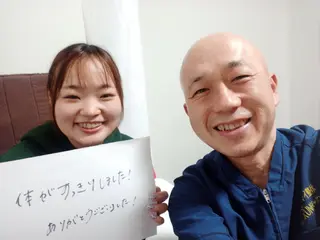 体がすっきりしました!
ありがとうございました!